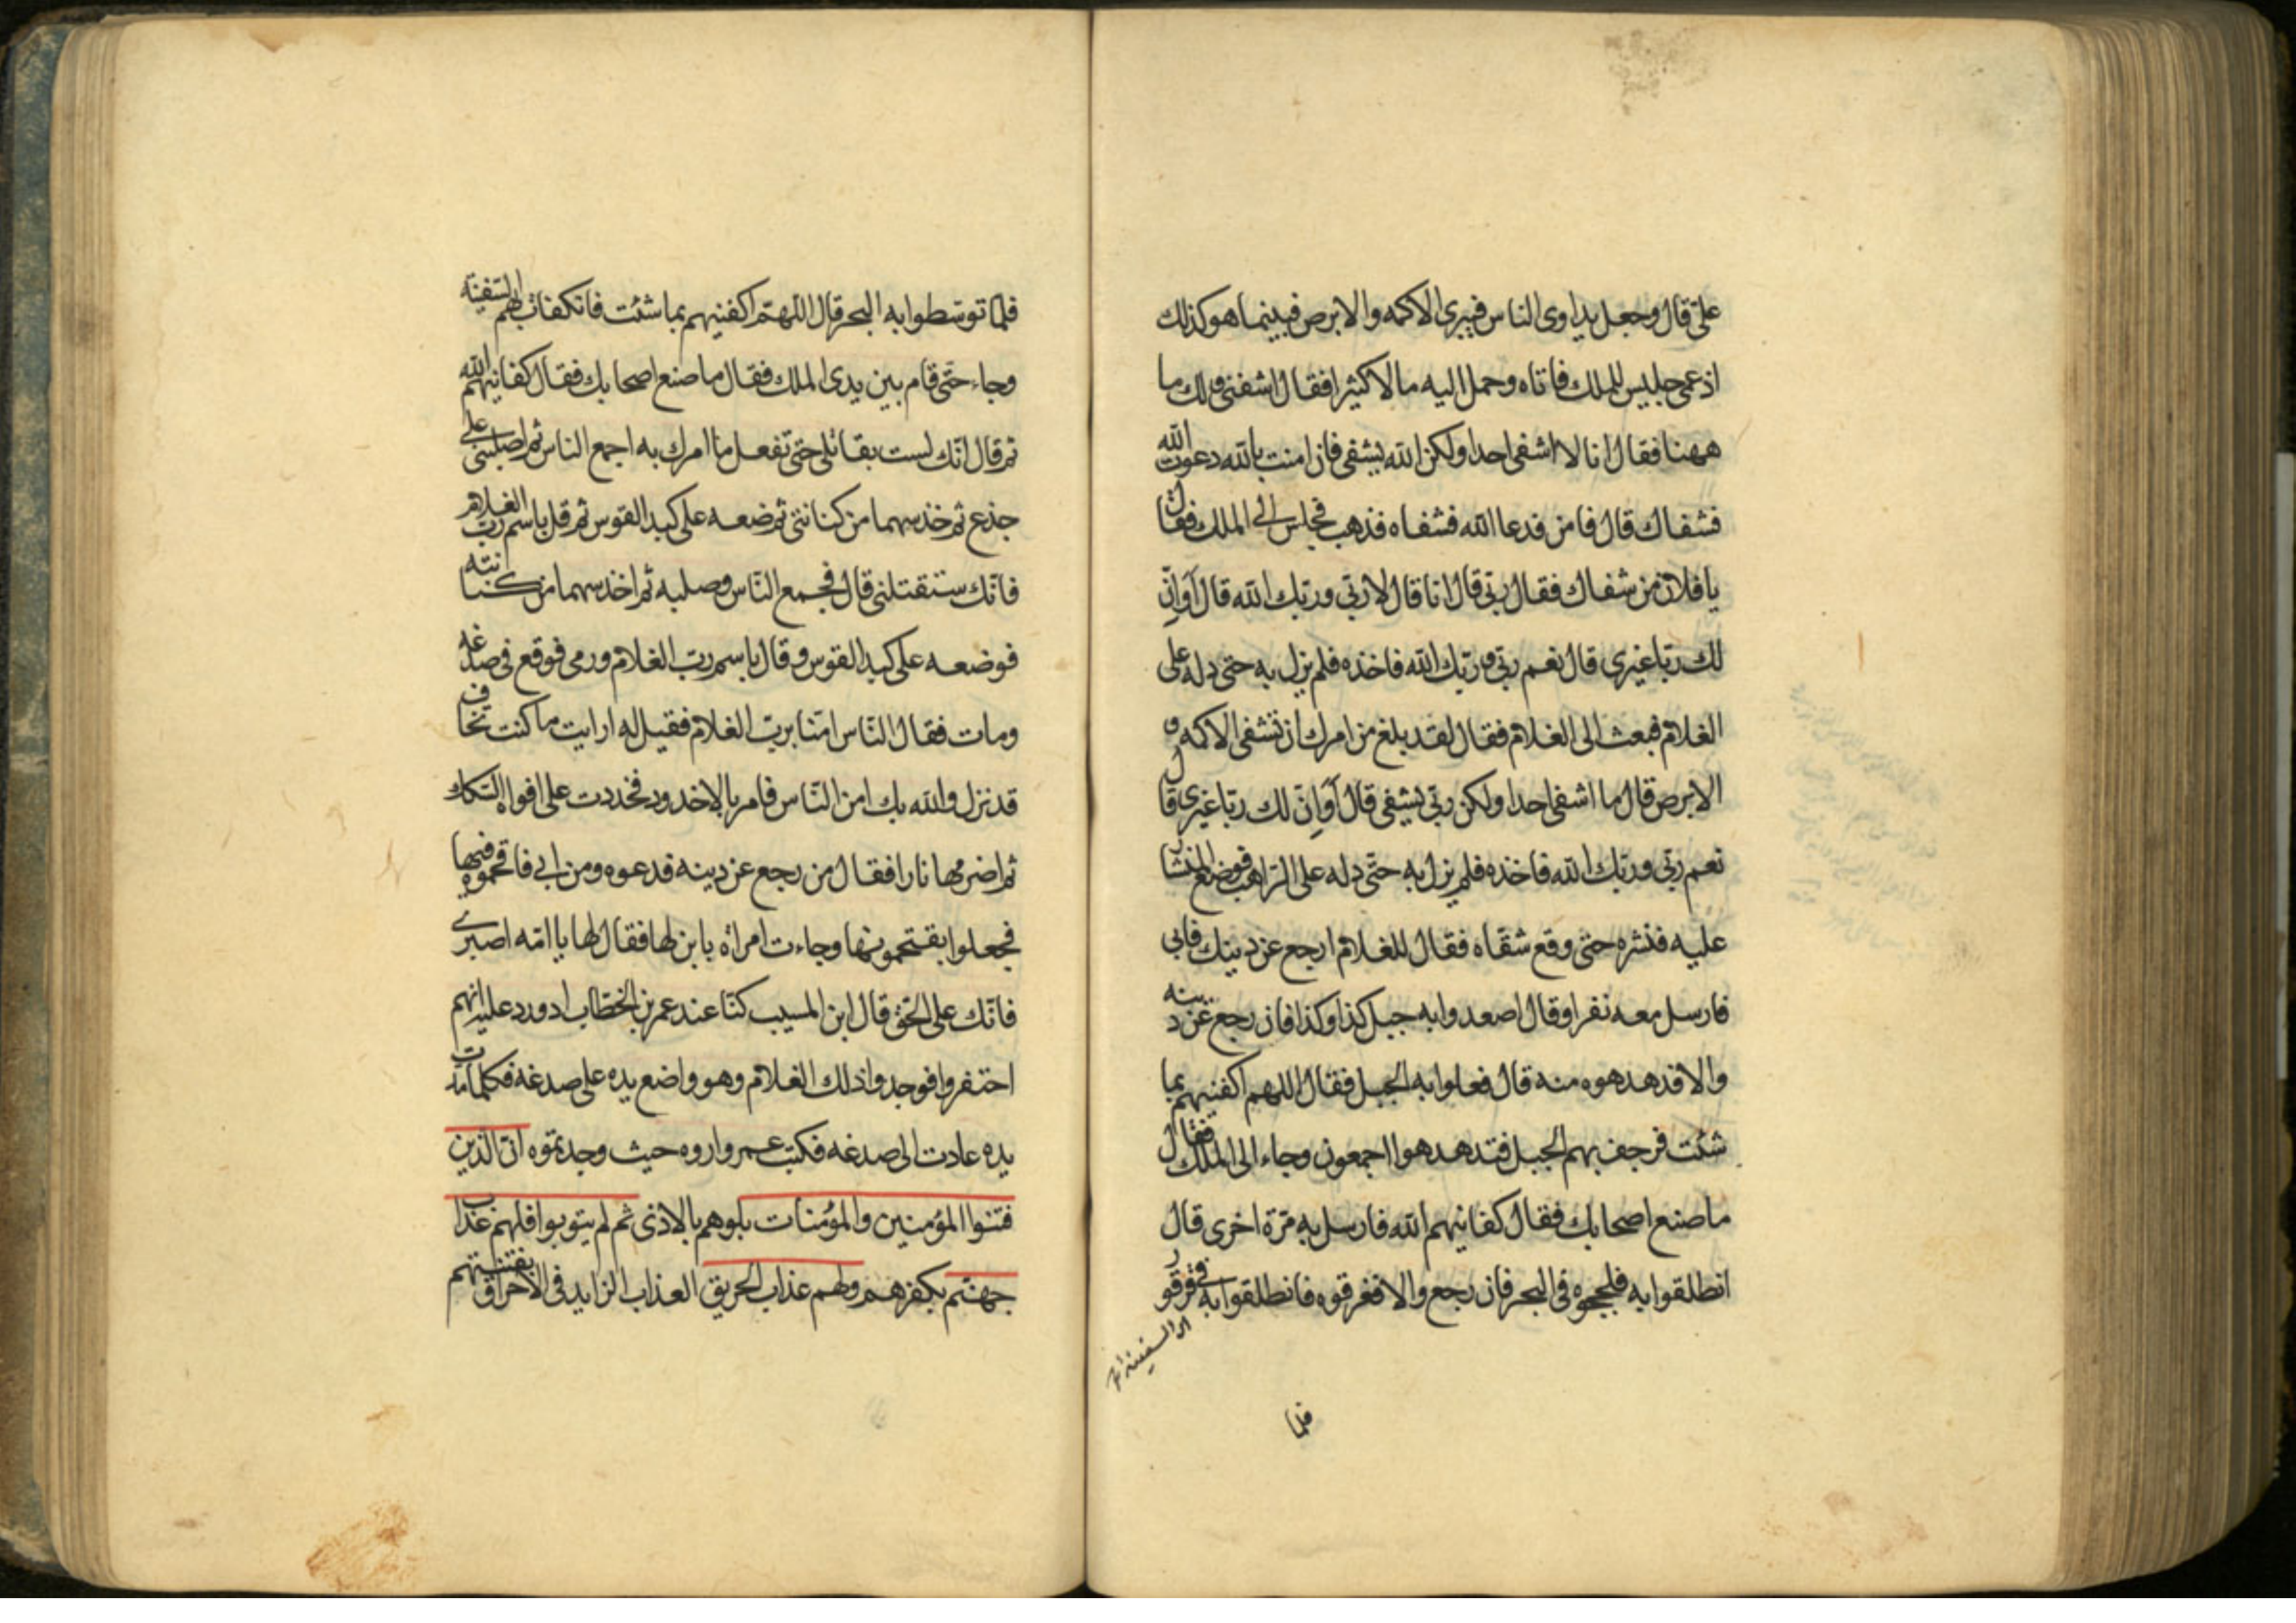 علىّ قال وجعل يداوى الناس فيبرى الاكمه والابرص فبينما هو كذلك
اذ عمى جليس للملك فاتاه وحمل اليه مالا كثيرا فقال اشفنى ولك ما
ههنا فقال انا لا اشفى احدا ولكن الله يشفى فان امنت بالله دعوت الله
فشفاك قال فامن فدعا الله فشفاه فذهب فجلس الى الملك فقال
يا فلان من شفاك فقال ربّى قال انا قال لا ربّى وربّك الله قال أَوَإنّ
لك ربّا غيرى قال نعم ربّى وربّك الله فاخذه فلم يزل به حتى دله على
الغلام فبعث الى الغلام فقال لقد بلغ من امرك أن تشفى الاكمه و
الابرص قال ما اشفى احدا ولكن ربّى يشفى قال أَوَإنّ لك ربّا غيرى قال
نعم ربّى وربّك الله فاخذه فلم يزل به حتّى دله على الرّاهب فوضع المنشار
عليه فنشره حتّى وقع شقّاه فقال للغلام ارجع عن دينك فابى
فارسل معه نفرا وقال اصعدوا به جبل كذا وكذا فان رجع عن دينه
والا فدهدهوه منه قال فعلوا به الجبل فقال اللهم اكفنيهم بما
شئت فرجف بهم الجبل فتدهدهوا اجمعون وجاء الى الملك فقال
ما صنع اصحابك فقال كفانيهم الله فارسل به مرّة اخرى قال
انطلقوا به فلججوه فى البحر فان رجع والا فغرقوه فانطلقوا به فى قرقور
فلما
فلمّا توسّطوا به البحر قال اللّهمّ اكفنيهم بما شئت فانكفات بهم السّفينة
وجاء حتّى قام بين يدى الملك فقال ما صنع اصحابك فقال كفانيهم الله
ثم قال انّك لست بقاتلى حتى تفعل ما امرك به اجمع الناس ثم اصلبنى على
جذع ثم خذ سهما من كنانتى ثم ضعه على كبد القوس ثم قل باسم ربّ الغلام
فانّك ستقتلنى قال فجمع النّاس وصلبه ثم اخذ سهما من كنانته
فوضعه على كبد القوس وقال باسم ربّ الغلام ورمى فوقع فى صدغه
ومات فقال النّاس امنّا بربّ الغلام فقيل له ارايت ما كنت تخاف
قد نزل والله بك امن النّاس فامر بالاخدود فخددت على افواه السّكك
ثم اضرمها نارا فقال من رجع عن دينه فدعوه ومن ابى فاقحموه فيها
فجعلوا يقتحمونها وجاءت امراة بابن لها فقال لها يا امّه اصبرى
فانّك على الحقّ قال ابن المسيب كنّا عند عمر بن الخطّاب اذ ورد عليه انهم
احتفروا فوجدوا ذلك الغلام وهو واضع يده على صدغه فكلما مدّت
يده عادت الى صدغه فكتب عمر واروه حيث وجدتموه انّ الّذين
فتنوا المؤمنين والمؤمنات بلوهم بالاذى ثم لم يتوبوا فلهم عذاب
جهنّم بكفرهم ولهم عذاب الحريق العذاب الزايد فى الاحراق بفتنتهم